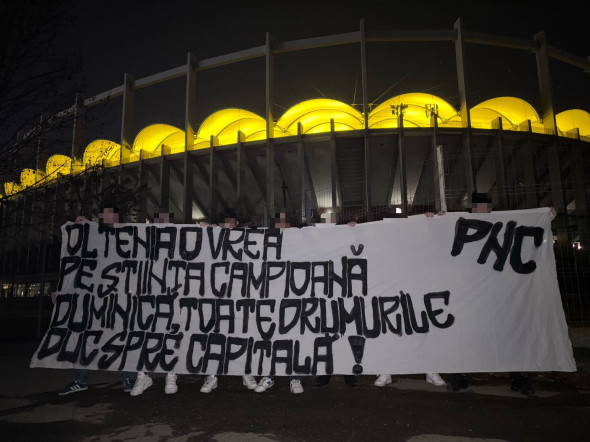 OLTENIA O VREA
PE ȘTIINȚA CAMPIOANĂ
DUMINICĂ, TOATE DRUMURILE
DUC SPRE CAPITALĂ!
PNC